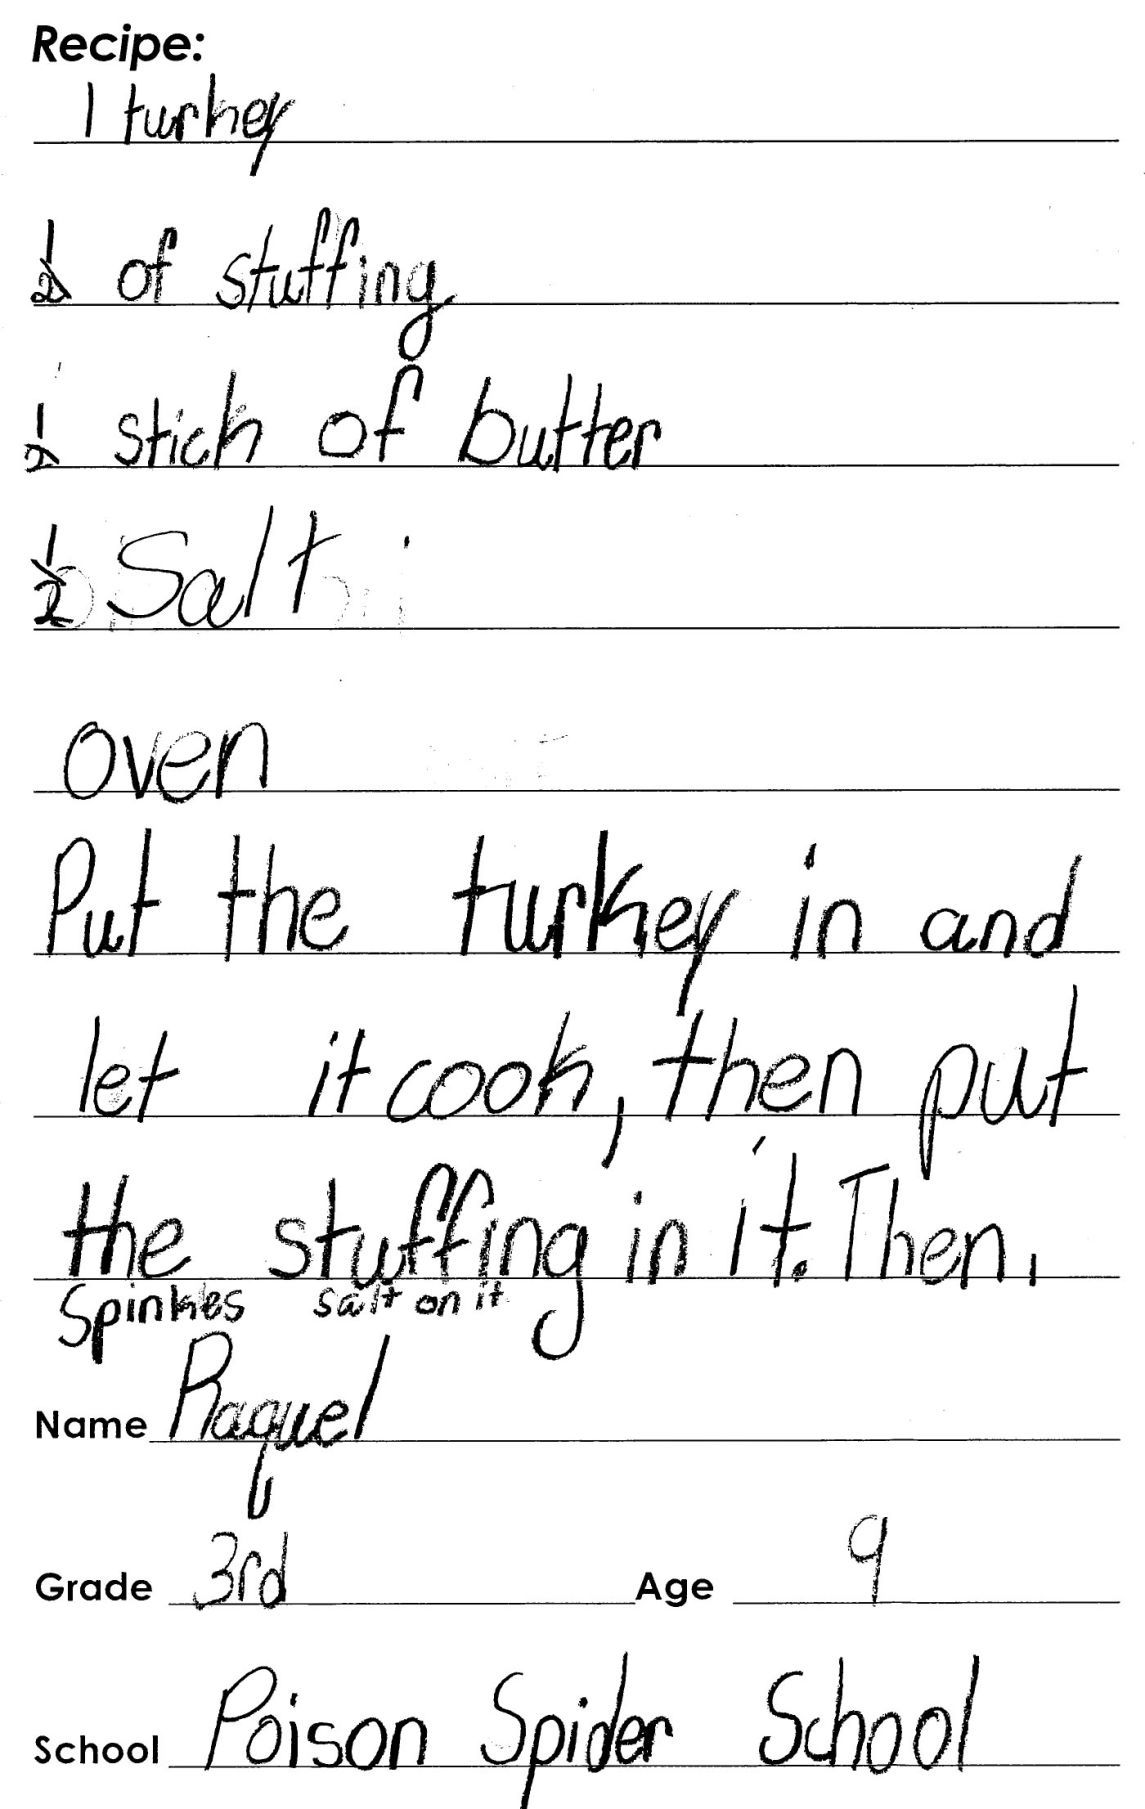 Recipe:
1 turkey
1/2 of stuffing
1/2 stick of butter
1/2 Salt
oven
Put the turkey in and
let it cook, then put
the stuffing in it. Then,
Spinkles salt on it
Name Raquel
Grade 3rd Age 9
School Poison Spider School